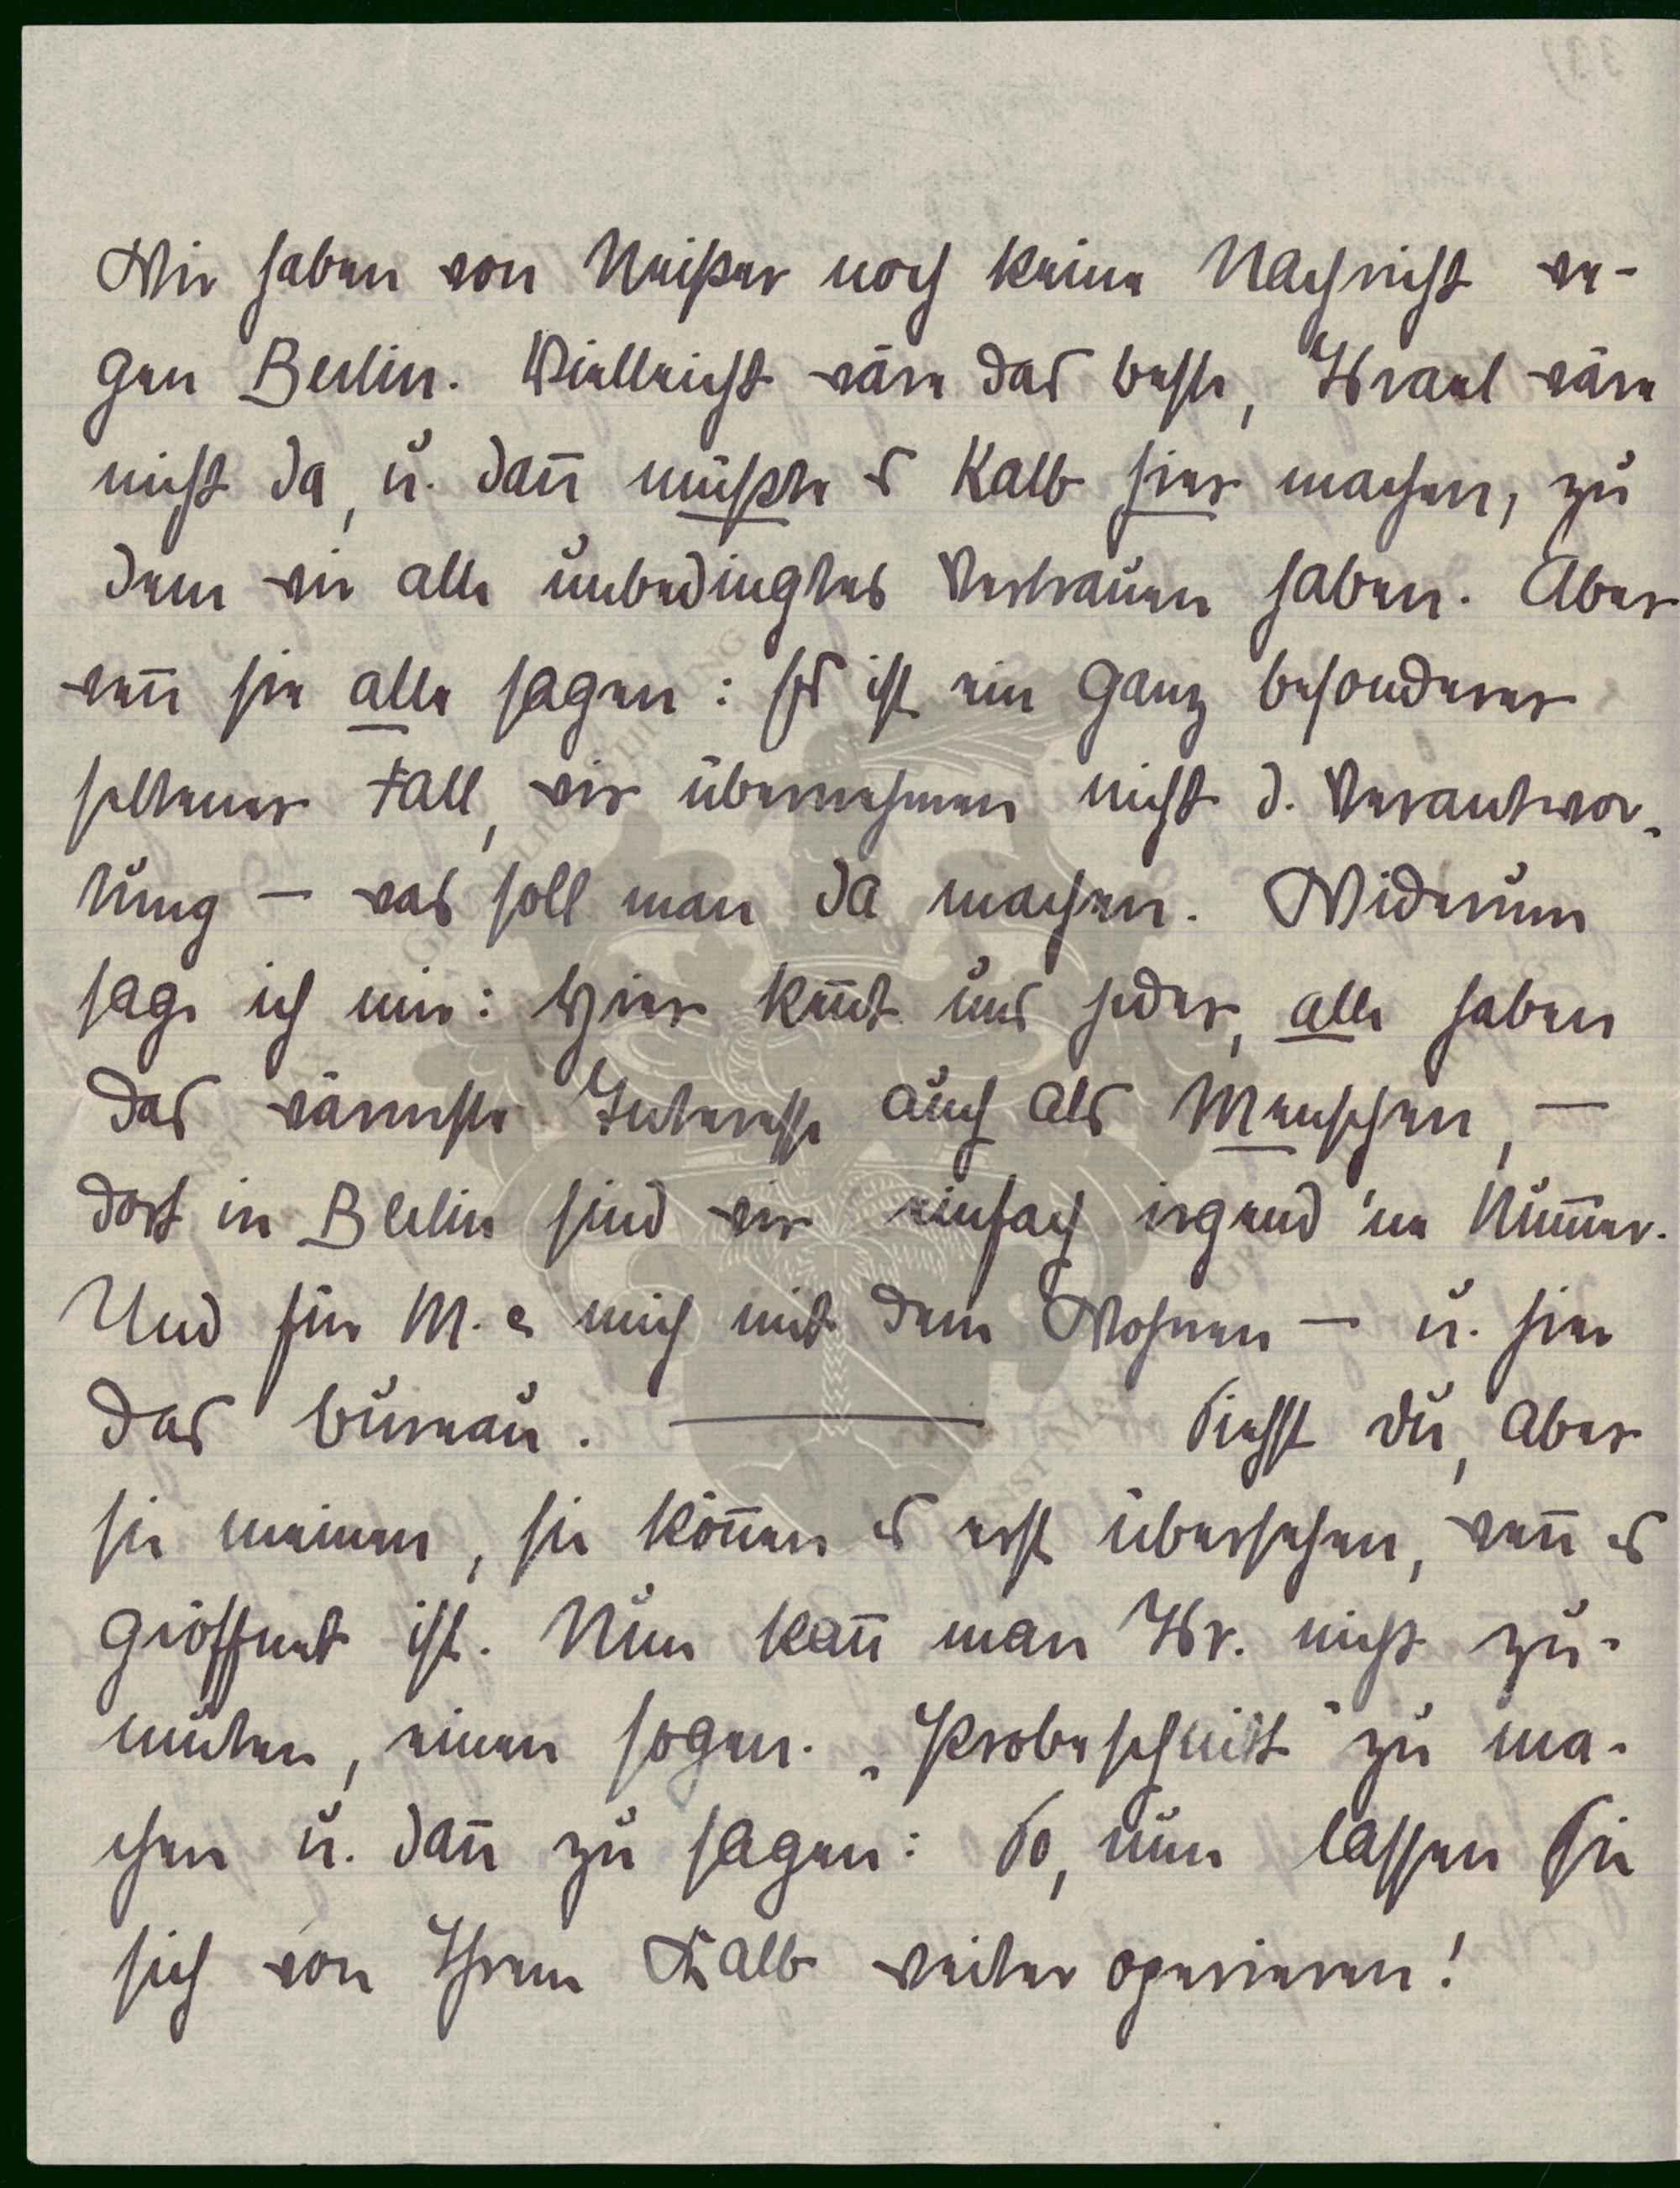 Wir haben von Neißer noch keine Nachricht we-
gen Berlin. Vielleicht wäre das beste, Israel wäre
nicht da, u. dann müßte es Kalb hier machen, zu
dem wir alle unbedingtes Vertrauen haben. Aber
wenn sie alle sagen: Es ist ein ganz besonderer
seltener Fall, wir übernehmen nicht d. Verantwor-
tung — was soll man da machen. Widerum
sage ich mir: Hier kennt uns jeder, alle haben
das wärmste Interesse auch als Menschen, —
dort in Berlin sind wir einfach irgend 'ne Nummer.
Und für M. & mich mit dem Wohnen — u. hier
das Bureau. — Siehst Du, aber
sie meinen, sie können es erst übersehen, wenn es
geöffnet ist. Nun kann man Isr. nicht zu-
muten, einen sogen. „Probeschnitt" zu ma-
chen u. dann zu sagen: So, nun lassen Sie
sich von Ihrem Kalb weiter operieren!